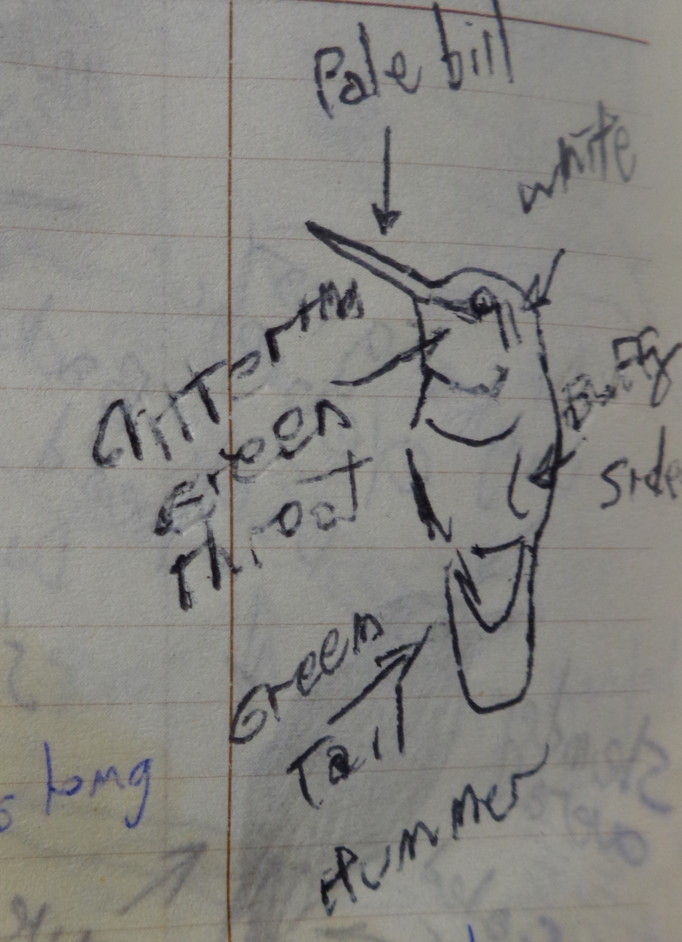 Pale bill
white
Glittering
Green
Throat
Buffy
side
Green
Tail
Hummer
long